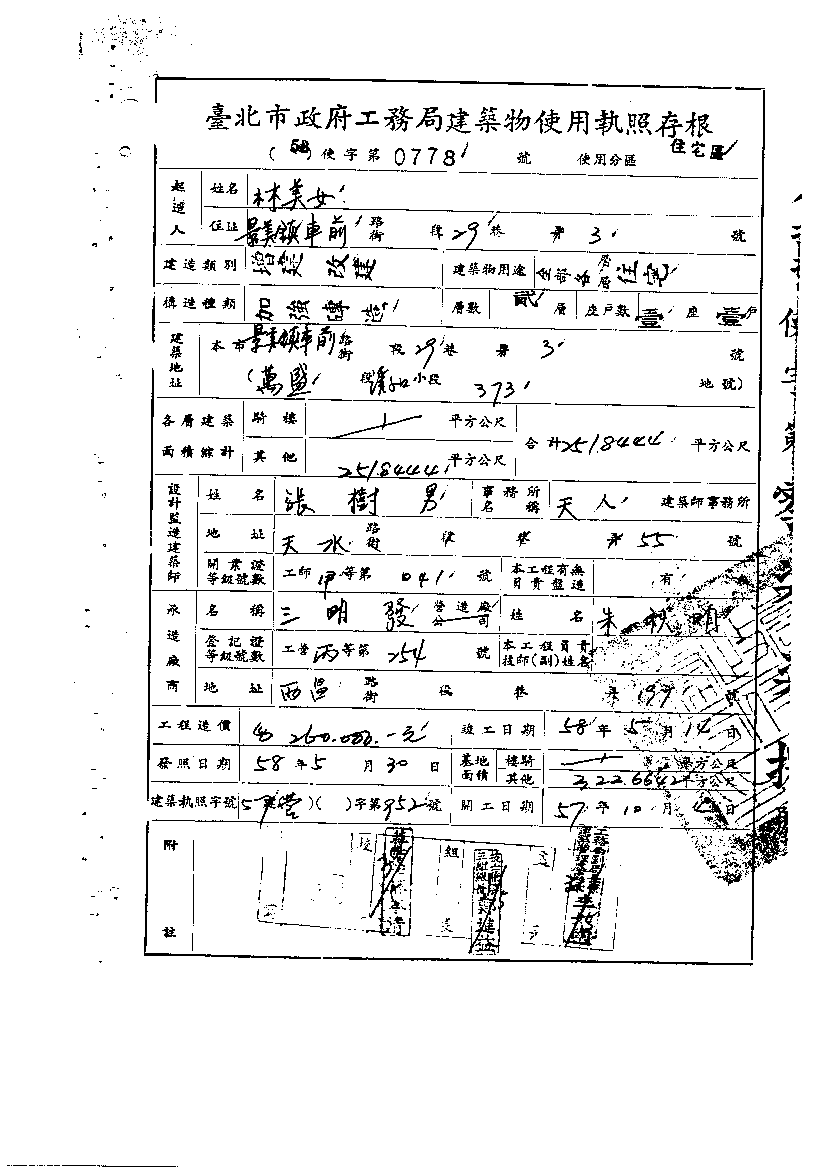 臺北市政府工務局建築物使用執照存根
(58)使字第0778號 使用分區 住宅區
起造人 姓名 林美女
住址 景美鎮車前路街 段29巷 弄3號
建造類別 增建 改建 建築物用途 全部各層住宅
構造種類 加強磚造 層數 貳層 座戶數 壹座壹戶
建築地址 本市景美鎮車前路街 段29巷 弄3號
(萬盛段溪口小段 373 地號)
各層建築面積綜計 騎樓 / 平方公尺 合計2518444平方公尺
其他 2518444平方公尺
設計監造建築師 姓名 張樹男 事務所名稱 天人 建築師事務所
地址 天水路街 段 巷 弄55號
開業證等級號數 工師甲等第041號 本工程有無負責監造 有
承造廠商 名稱 三明發營造廠公司 姓名 朱秋
登記證等級號數 工營丙等第254號 本工程負責技師(副)姓名
地址 西區路街 段 巷 弄199號
工程造價 260.000.-元 竣工日期 58年5月14日
發照日期 58年5月30日 基地面積 樓騎 / 平方公尺
其他 322.6642平方公尺
建築執照字號 57營( )字第952號 開工日期 57年10月4日
附註